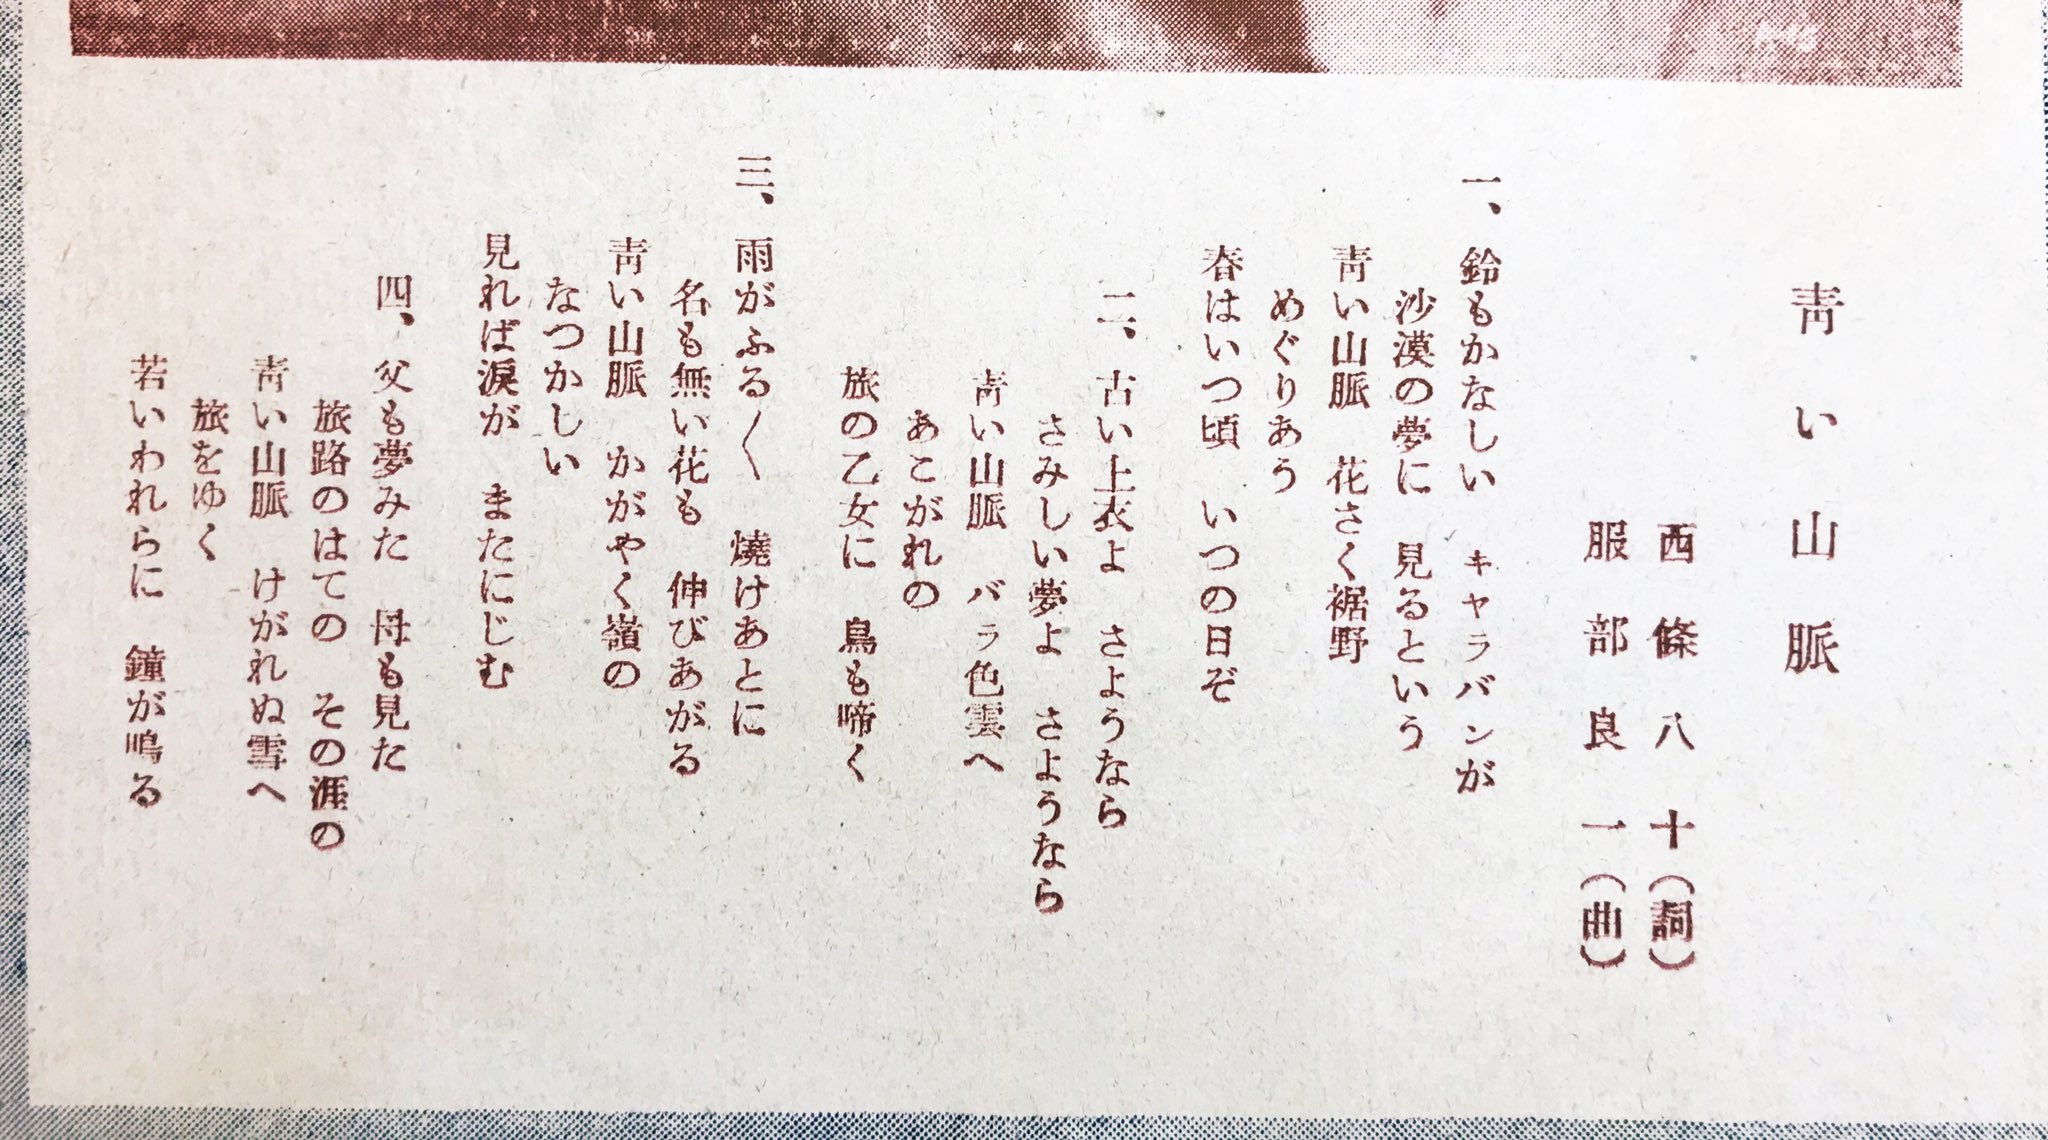 靑い山脈
西條八十(詞)
服部良一(曲)
一、鈴もかなしい　キャラバンが
沙漠の夢に　見るという
靑い山脈　花さく裾野
めぐりあう
春はいつ頃　いつの日ぞ
二、古い上衣よ　さようなら
さみしい夢よ　さようなら
靑い山脈　バラ色雲へ
あこがれの
旅の乙女に　鳥も啼く
三、雨がふる〳〵　燒けあとに
名も無い花も　伸びあがる
靑い山脈　かがやく嶺の
なつかしい
見れば淚が　またにじむ
四、父も夢みた　母も見た
旅路のはての　その涯の
靑い山脈　けがれぬ雪へ
旅をゆく
若いわれらに　鐘が鳴る